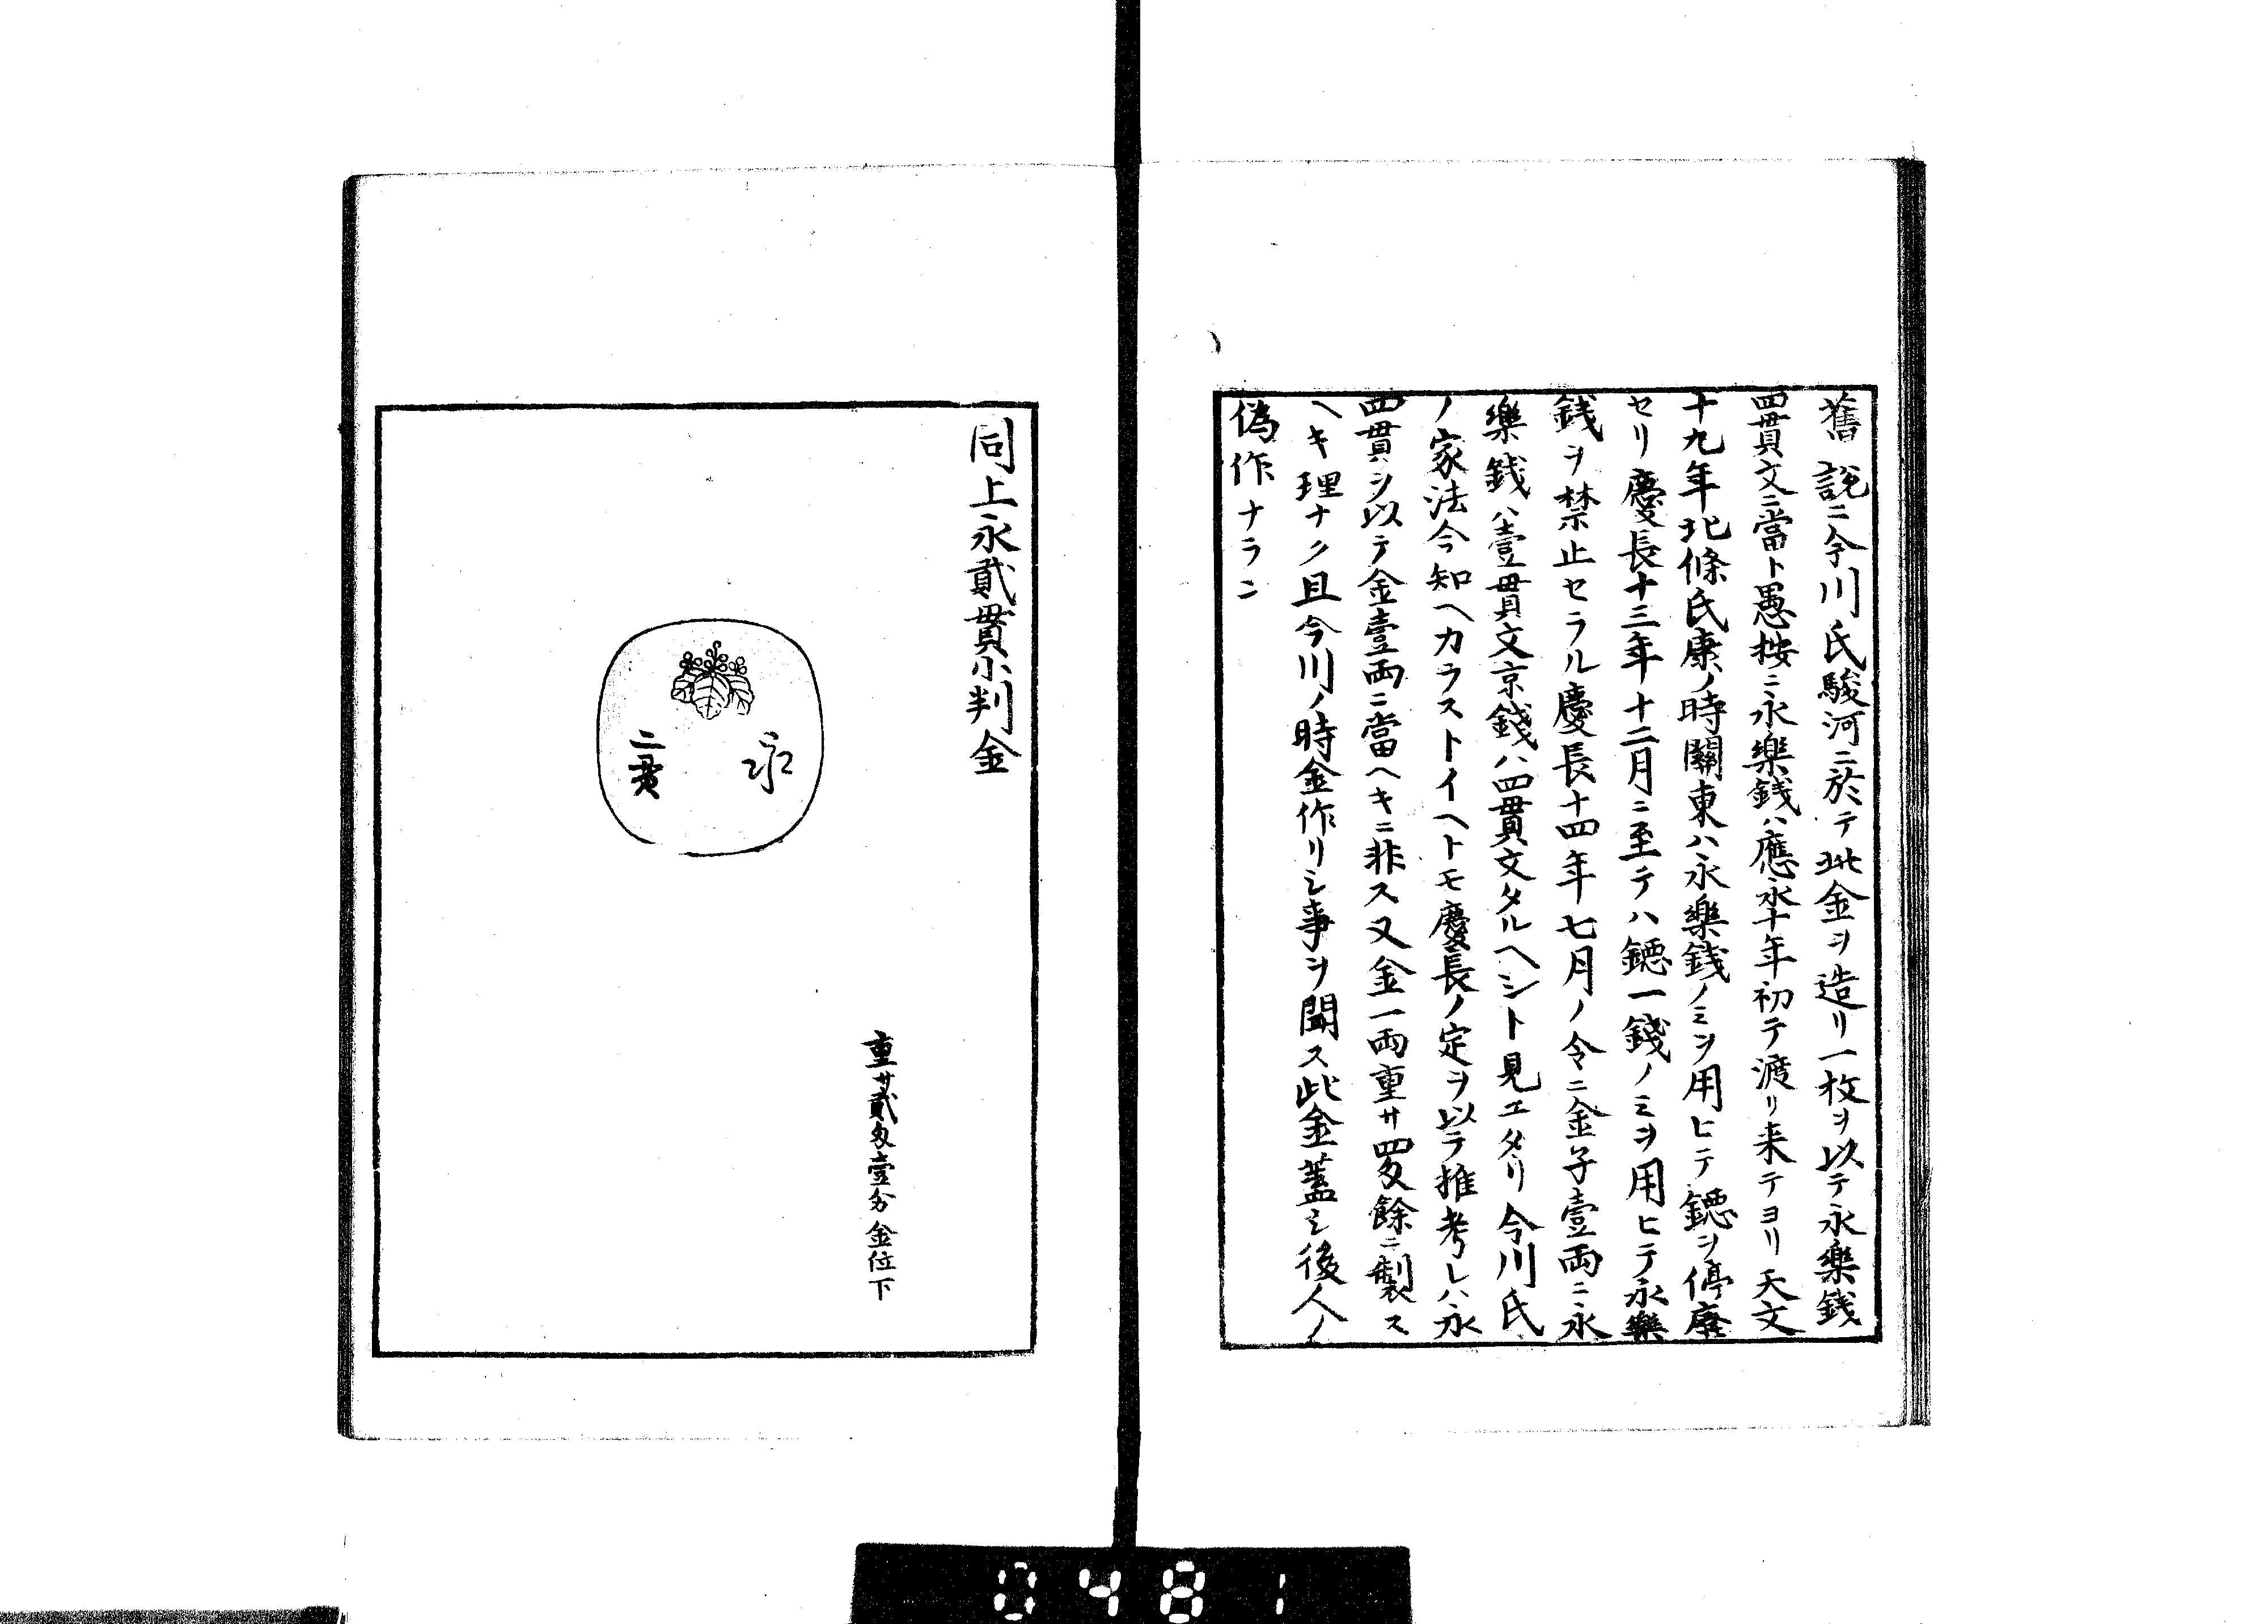 舊説ニ今川氏駿河ニ於テ此金ヲ造リ一枚ヲ以テ永樂銭
四貫文ニ當ト愚按ニ永樂銭ハ應永十年初テ渡リ来テヨリ天文
十九年北條氏康ノ時關東ハ永樂銭ノミヲ用ヒテ鐚ヲ停廢
セリ慶長十三年十二月ニ至テハ鐚一錢ノミヲ用ヒテ永樂
銭ヲ禁止セラル慶長十四年七月ノ令ニ金子壹両ニ永
樂銭ハ壹貫文京錢ハ四貫文タルヘシト見エタリ今川氏
ノ家法今知ヘカラストイヘトモ慶長ノ定ヲ以テ推考レハ永
四貫ヲ以テ金壹両ニ當ヘキニ非ス又金一両重サ四匁餘ニ製ス
ヘキ理ナク且今川ノ時金作リシ事ヲ聞ス此金蓋シ後人ノ
偽作ナラン
同上永貳貫小判金
永
二貫
重サ貳匁壹分金位下
0481